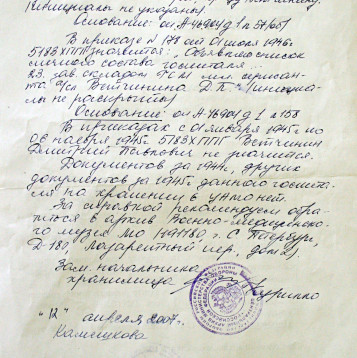 Инициалы не указаны.
Основание: оп А-76904 д 1 л 57,65/
В приказе N 178 от 01 июля 1945г
5183ХППГ значится: „Объявляю список
личного состава госпиталя...
23. зав. складом ГСМ мл. сержан-
та а/сл Ветчинина Д.П. Инициа-
лы не раскрыты
Основание: оп А-76904 д 1 л 158
В приказах с 01 января 1945г по
06 ноября 1945г. 5183ХППГ Ветчинин
Дмитрий Павлович не значится.
Документов за 1944г, других
документов за 1945г данного госпита-
ля на хранении в архиве нет.
За справкой рекомендуем обра-
титься в архив Военно-медицинско-
го музея МО 191180 г. С Петербург,
Д-180, Лазаретный пер, дом 2.
Зам. начальника
хранилища Куринко
"12" апреля 2007г.
Камешкова